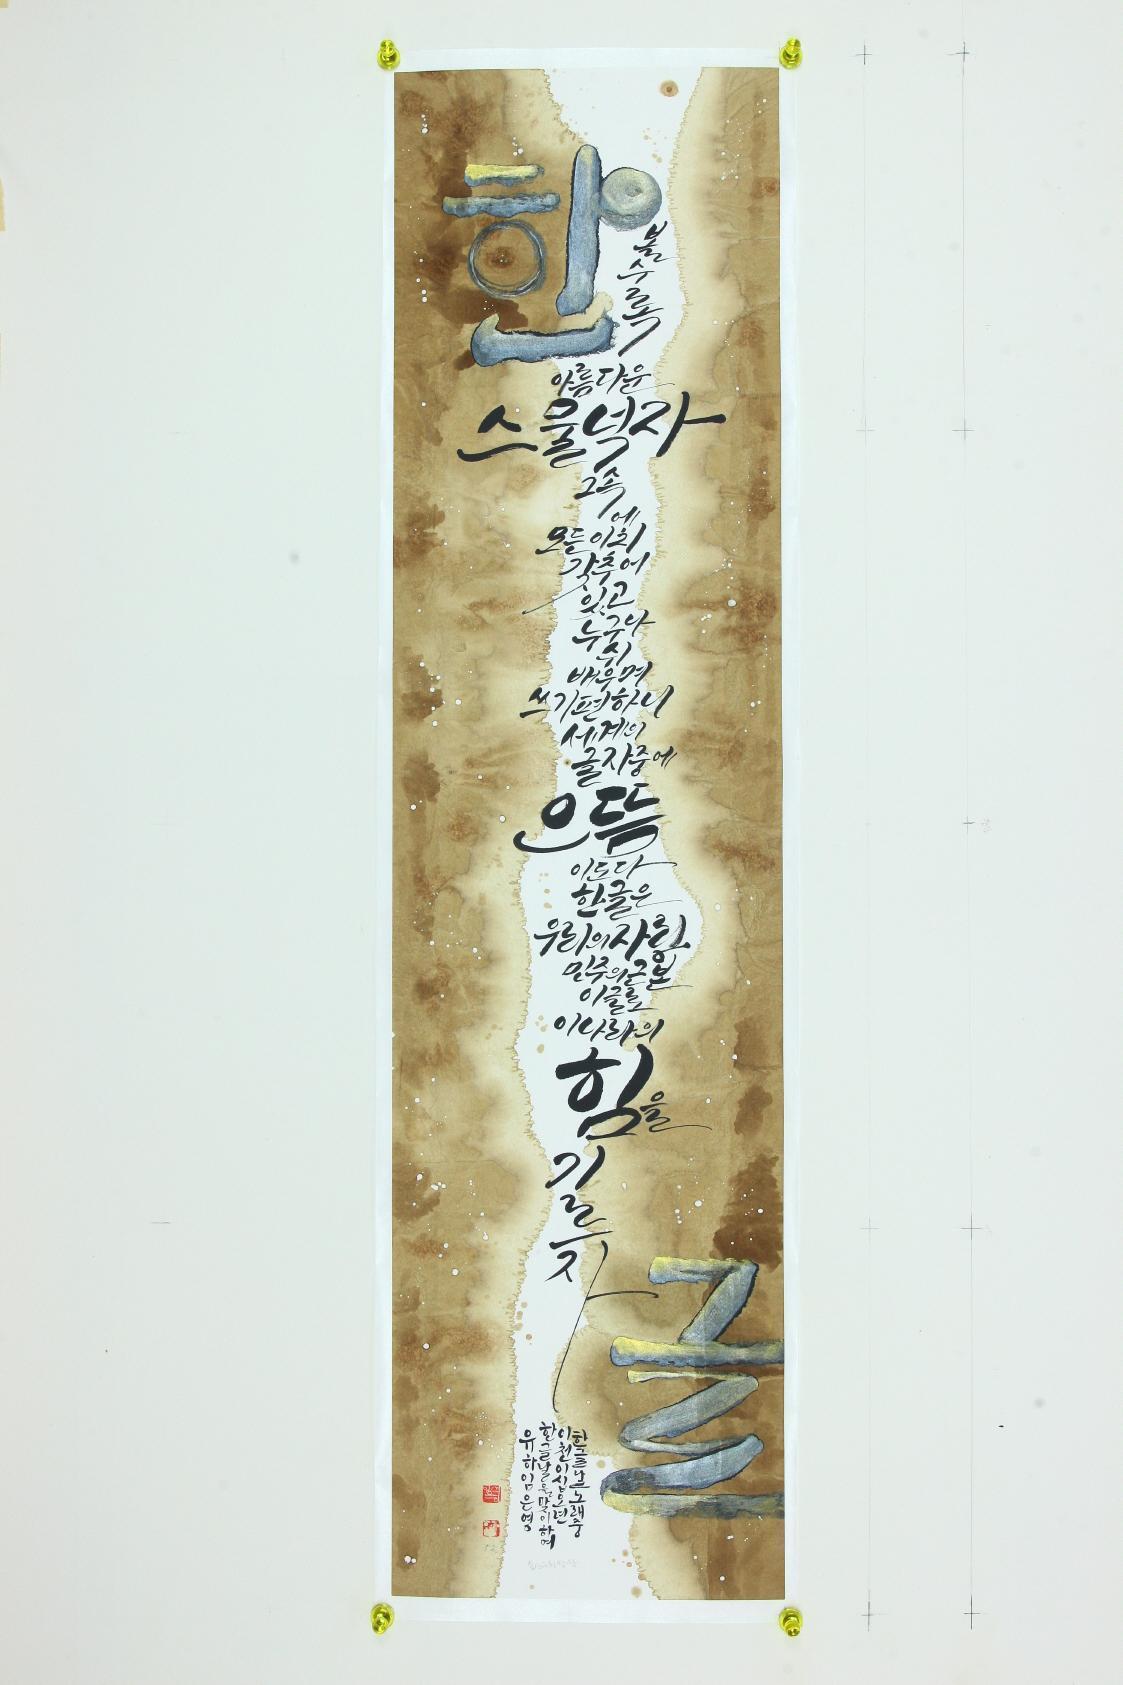 한
글
볼
수
록
아름다운
스물넉자
그속
에
모든이치
갖추어
있고
누구나
쉬
배우며
쓰기편하니
세계의
글자중에
으뜸
이도다
한글은
우리의자랑
민주의근본
이글로
이나라의
힘을
기
르
자
한글날노래중
이천이십오년
한글날을맞이하여
유하임은영